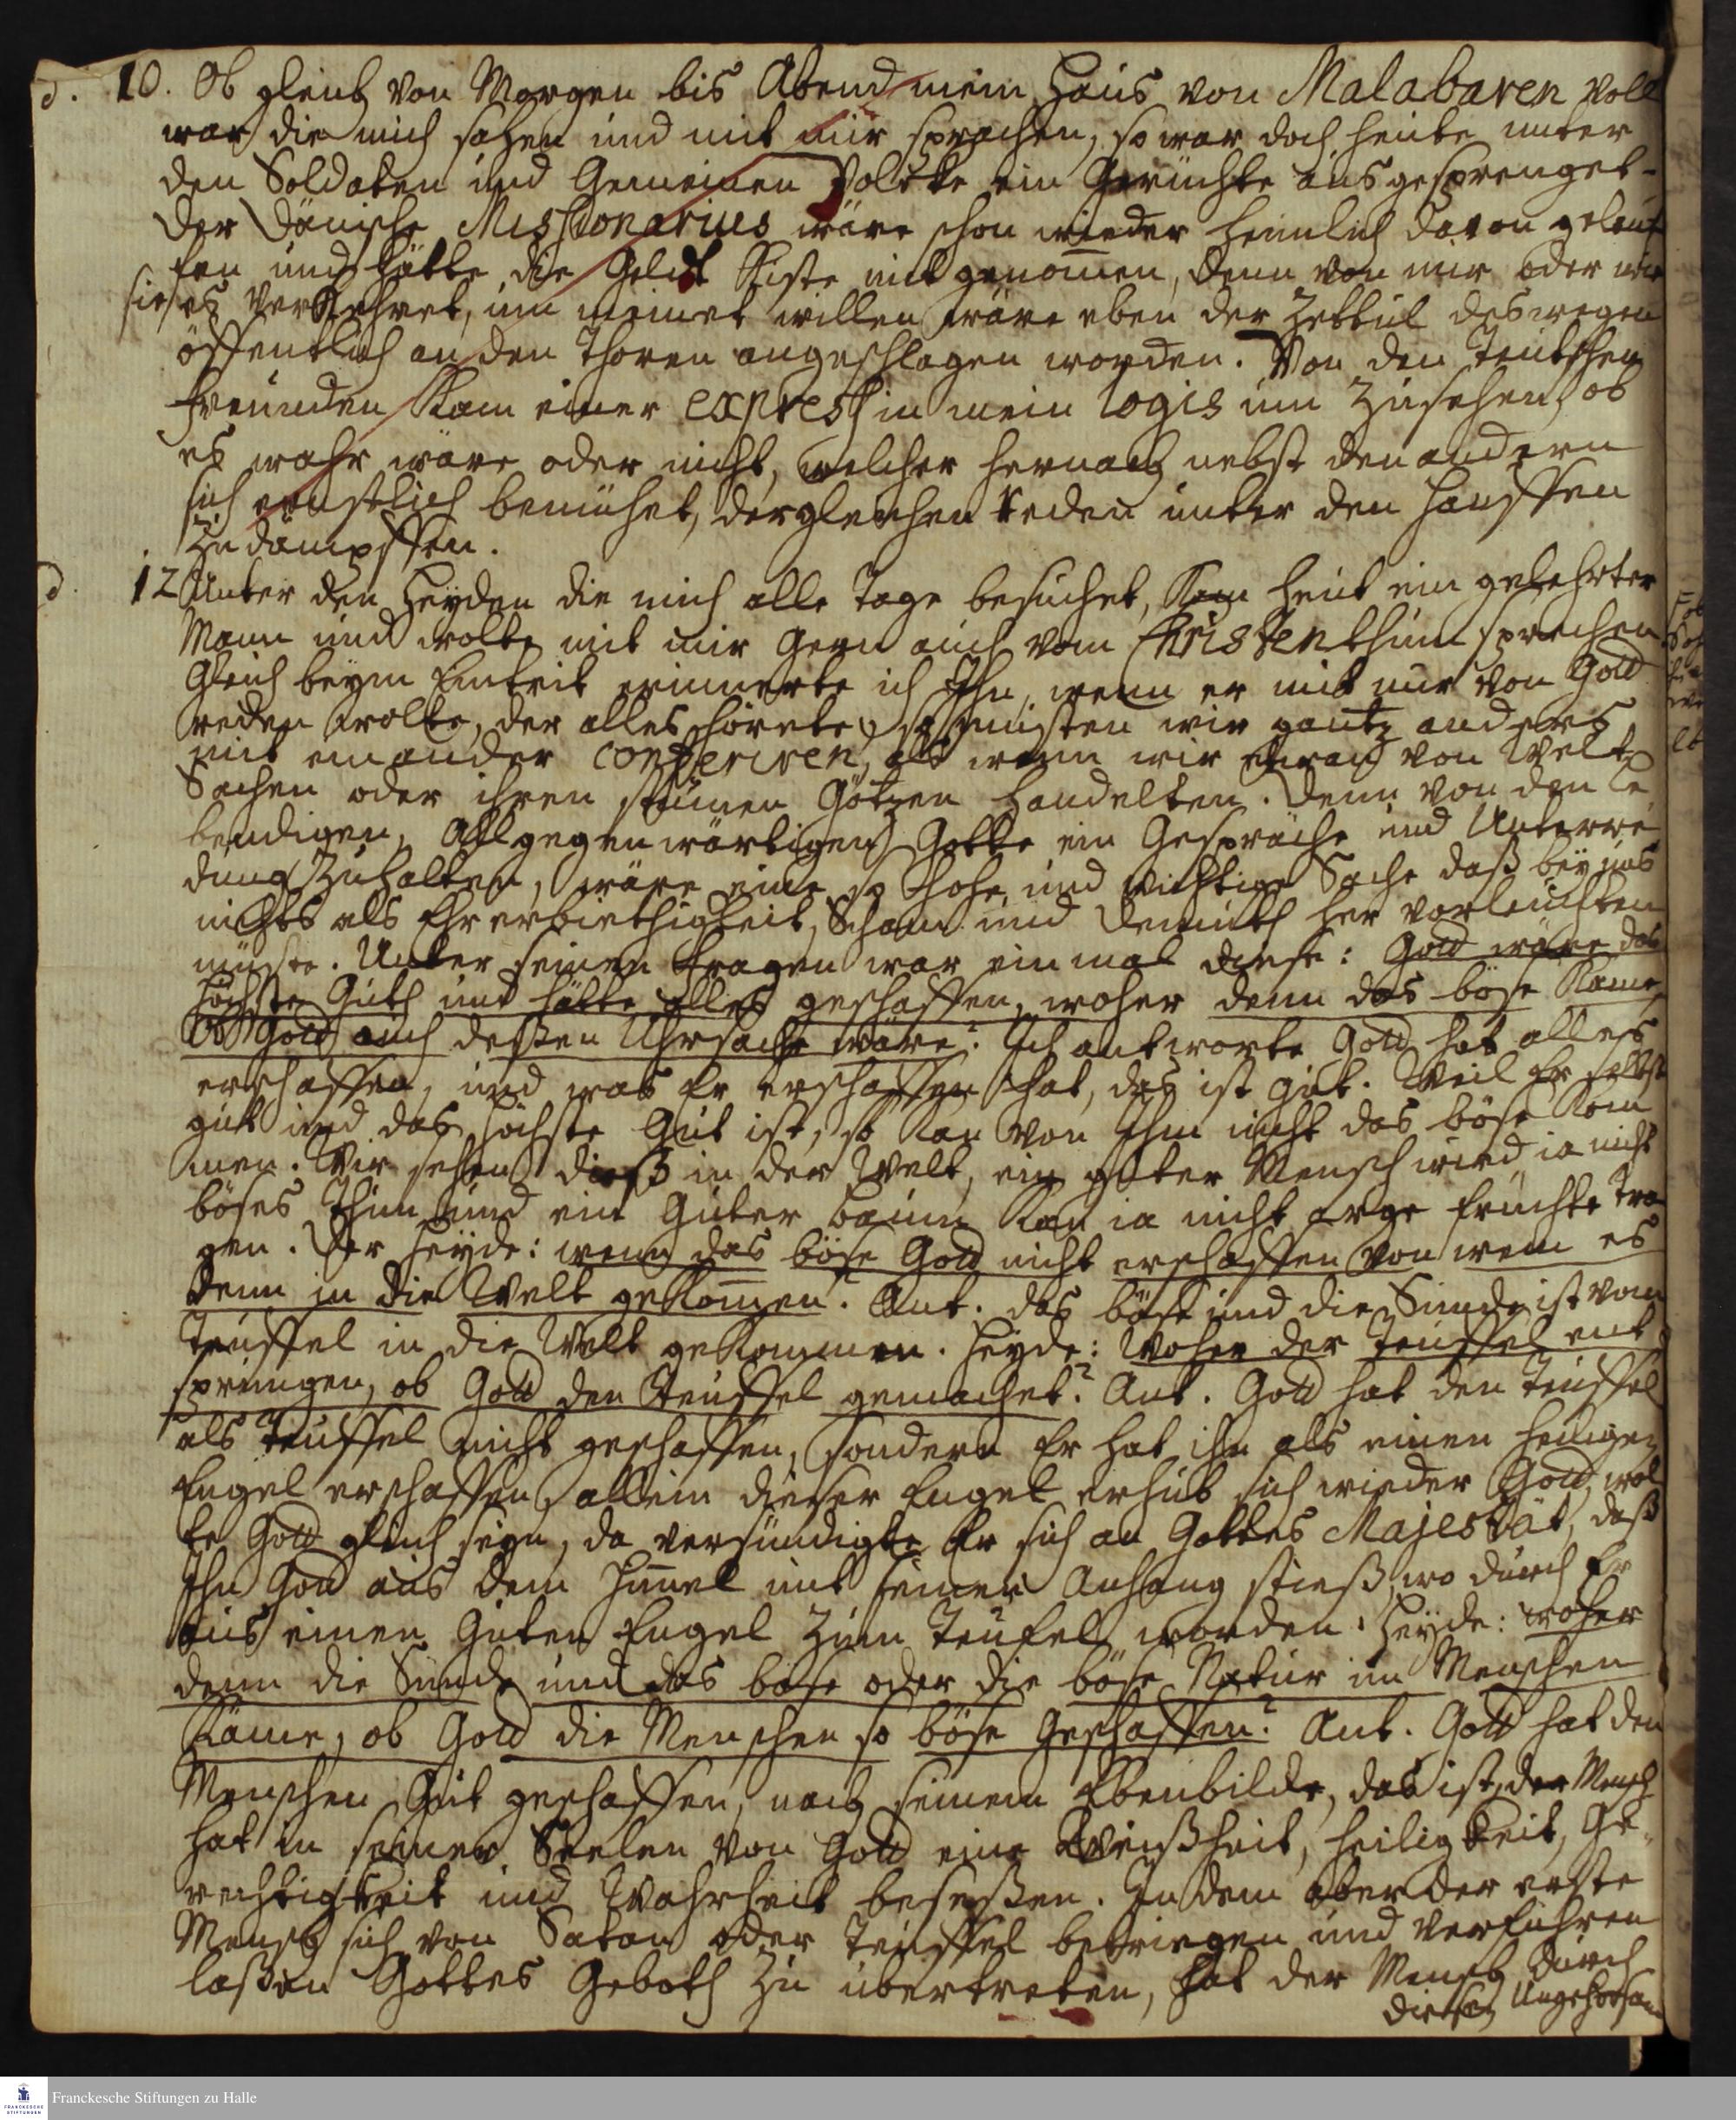 d. 10. Ob gleich von Morgen bis Abend mein Haus von Malabaren voll
war die mich sahen und mit mir sprachen, so war doch heute unter
den Soldaten und Gemeinen Volcke ein Gerüchte ausgesprenget-
Der Dänische Missionarius wäre schon wieder heimlich davon gelauf
fen und hätte die Geldt Kiste mit genom̅en, denn von mir oder wie
sie es verkehret, um meinet willen wäre eben der Zettul deswegen
öffentlich an den Thoren angeschlagen worden. Von den Teutschen
Freunden kam einer express in mein logis um zusehen, ob
es wahr wäre oder nicht, welcher hernach nebst den andern
sich ernstlich bemühet, dergleichen reden unter den Hauffen
zu dämpffen.
d. 12 Unter den Heyden die mich alle Tage besuchet, kam heut ein gelehrter
Mann und wolte mit mir gern auch vom Christenthum sprechen
Gleich beym Eintrit erinnerte ich Ihn, wenn er mit mir von Gott
reden wolte, der alles hörete, so müsten wir gantz anders
mit einander conferiren, als wenn wir etwan von Welt
Sachen oder ihren stummen Götzen handelten. Denn von den le
bendigen, Allgegenwärtigen Gotte ein Gespräche und Unterre
dung zuhalten, wäre eine so hohe und wichtige Sache daß bey uns
nichts als Ehrerbiethigkeit, Scham und Demuth her vorleuchten
müste. Unter seinen Fragen war einmal diese: Gott wäre das
höchste Guth und hätte alles geschaffen, woher denn das böse käme,
Ob Gott auch deßen Uhrsache wäre? Ich antworte Gott hat alles
erschaffen, und was Er erschaffen hat, das ist gut. Weil Er selbst
gut und das höchste Gut ist, so kan von Ihm nicht das böse kom
men. Wir sehen dieß in der Welt, ein guter Mensch wird ia nicht
böses thun und ein Guter baum kan ia nicht arge früchte tra
gen. Der Heyde: wenn das böse Gott nicht erschaffen von wem es
denn in die Welt gekom̅en. Ant. das böse und die Sünde ist vom
Teuffel in die Welt gekommen. Heyde: Woher der Teuffel ent
sprungen, ob Gott den Teuffel gemachet? Ant. Gott hat den Teuffel
als Teuffel nicht geschaffen, sondern Er hat ihn als einen heiligen
Engel erschaffen, allein dieser Engel erhub sich wieder Gott, wol
te Gott gleich seyn, da versündigte Er sich an Gottes Majestät, daß
Ihn Gott aus dem Him̅el mit seinen Anhang stieß, wo durch Er
aus einen Guten Engel zum Teufel worden. Heyde: woher
denn die Sünde und das böse oder die böse Natur im Menschen
käme, ob Gott die Menschen so böse geschaffen? Ant. Gott hat den
Menschen Gut geschaffen, nach seinem Ebenbilde, das ist, der Mensch
hat in seiner Seelen von Gott eine Weißheit, heiligkeit, Ge-
rechtigkeit und Wahrheit beseßen. In dem aber der erste
Mensch sich von Satan oder Teuffel betriegen und verführen
laßen Gottes Geboth zu übertreten, hat der Mensch durch
diesen Ungehorsam
Franckesche Stiftungen zu Halle